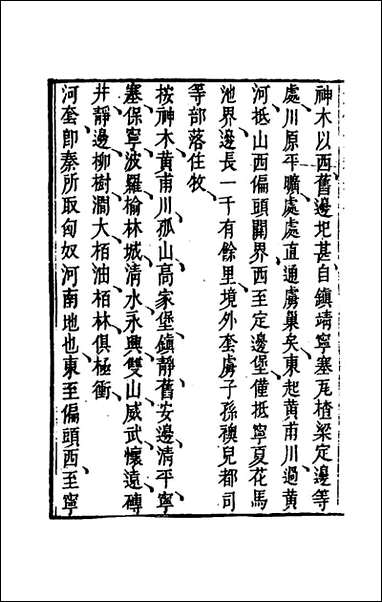 神木以西舊邊圮甚自鎮靖寧塞瓦楂梁定邊等
處川原平曠處處直通虜巢矣東起黃甫川過黃
河抵山西偏頭關界西至定邊堡僅抵寧夏花馬
池界邊長一千有餘里境外套虜子孫襖兒都司
等部落住牧
按神木黃甫川孤山高家堡鎮靜舊安邊清平寧
塞保寧波羅榆林城清水永興雙山威武懷遠磚
井靜邊柳樹澗大栢油栢林俱極衝
河套卽秦所取匈奴河南地也東至偏頭西至寧